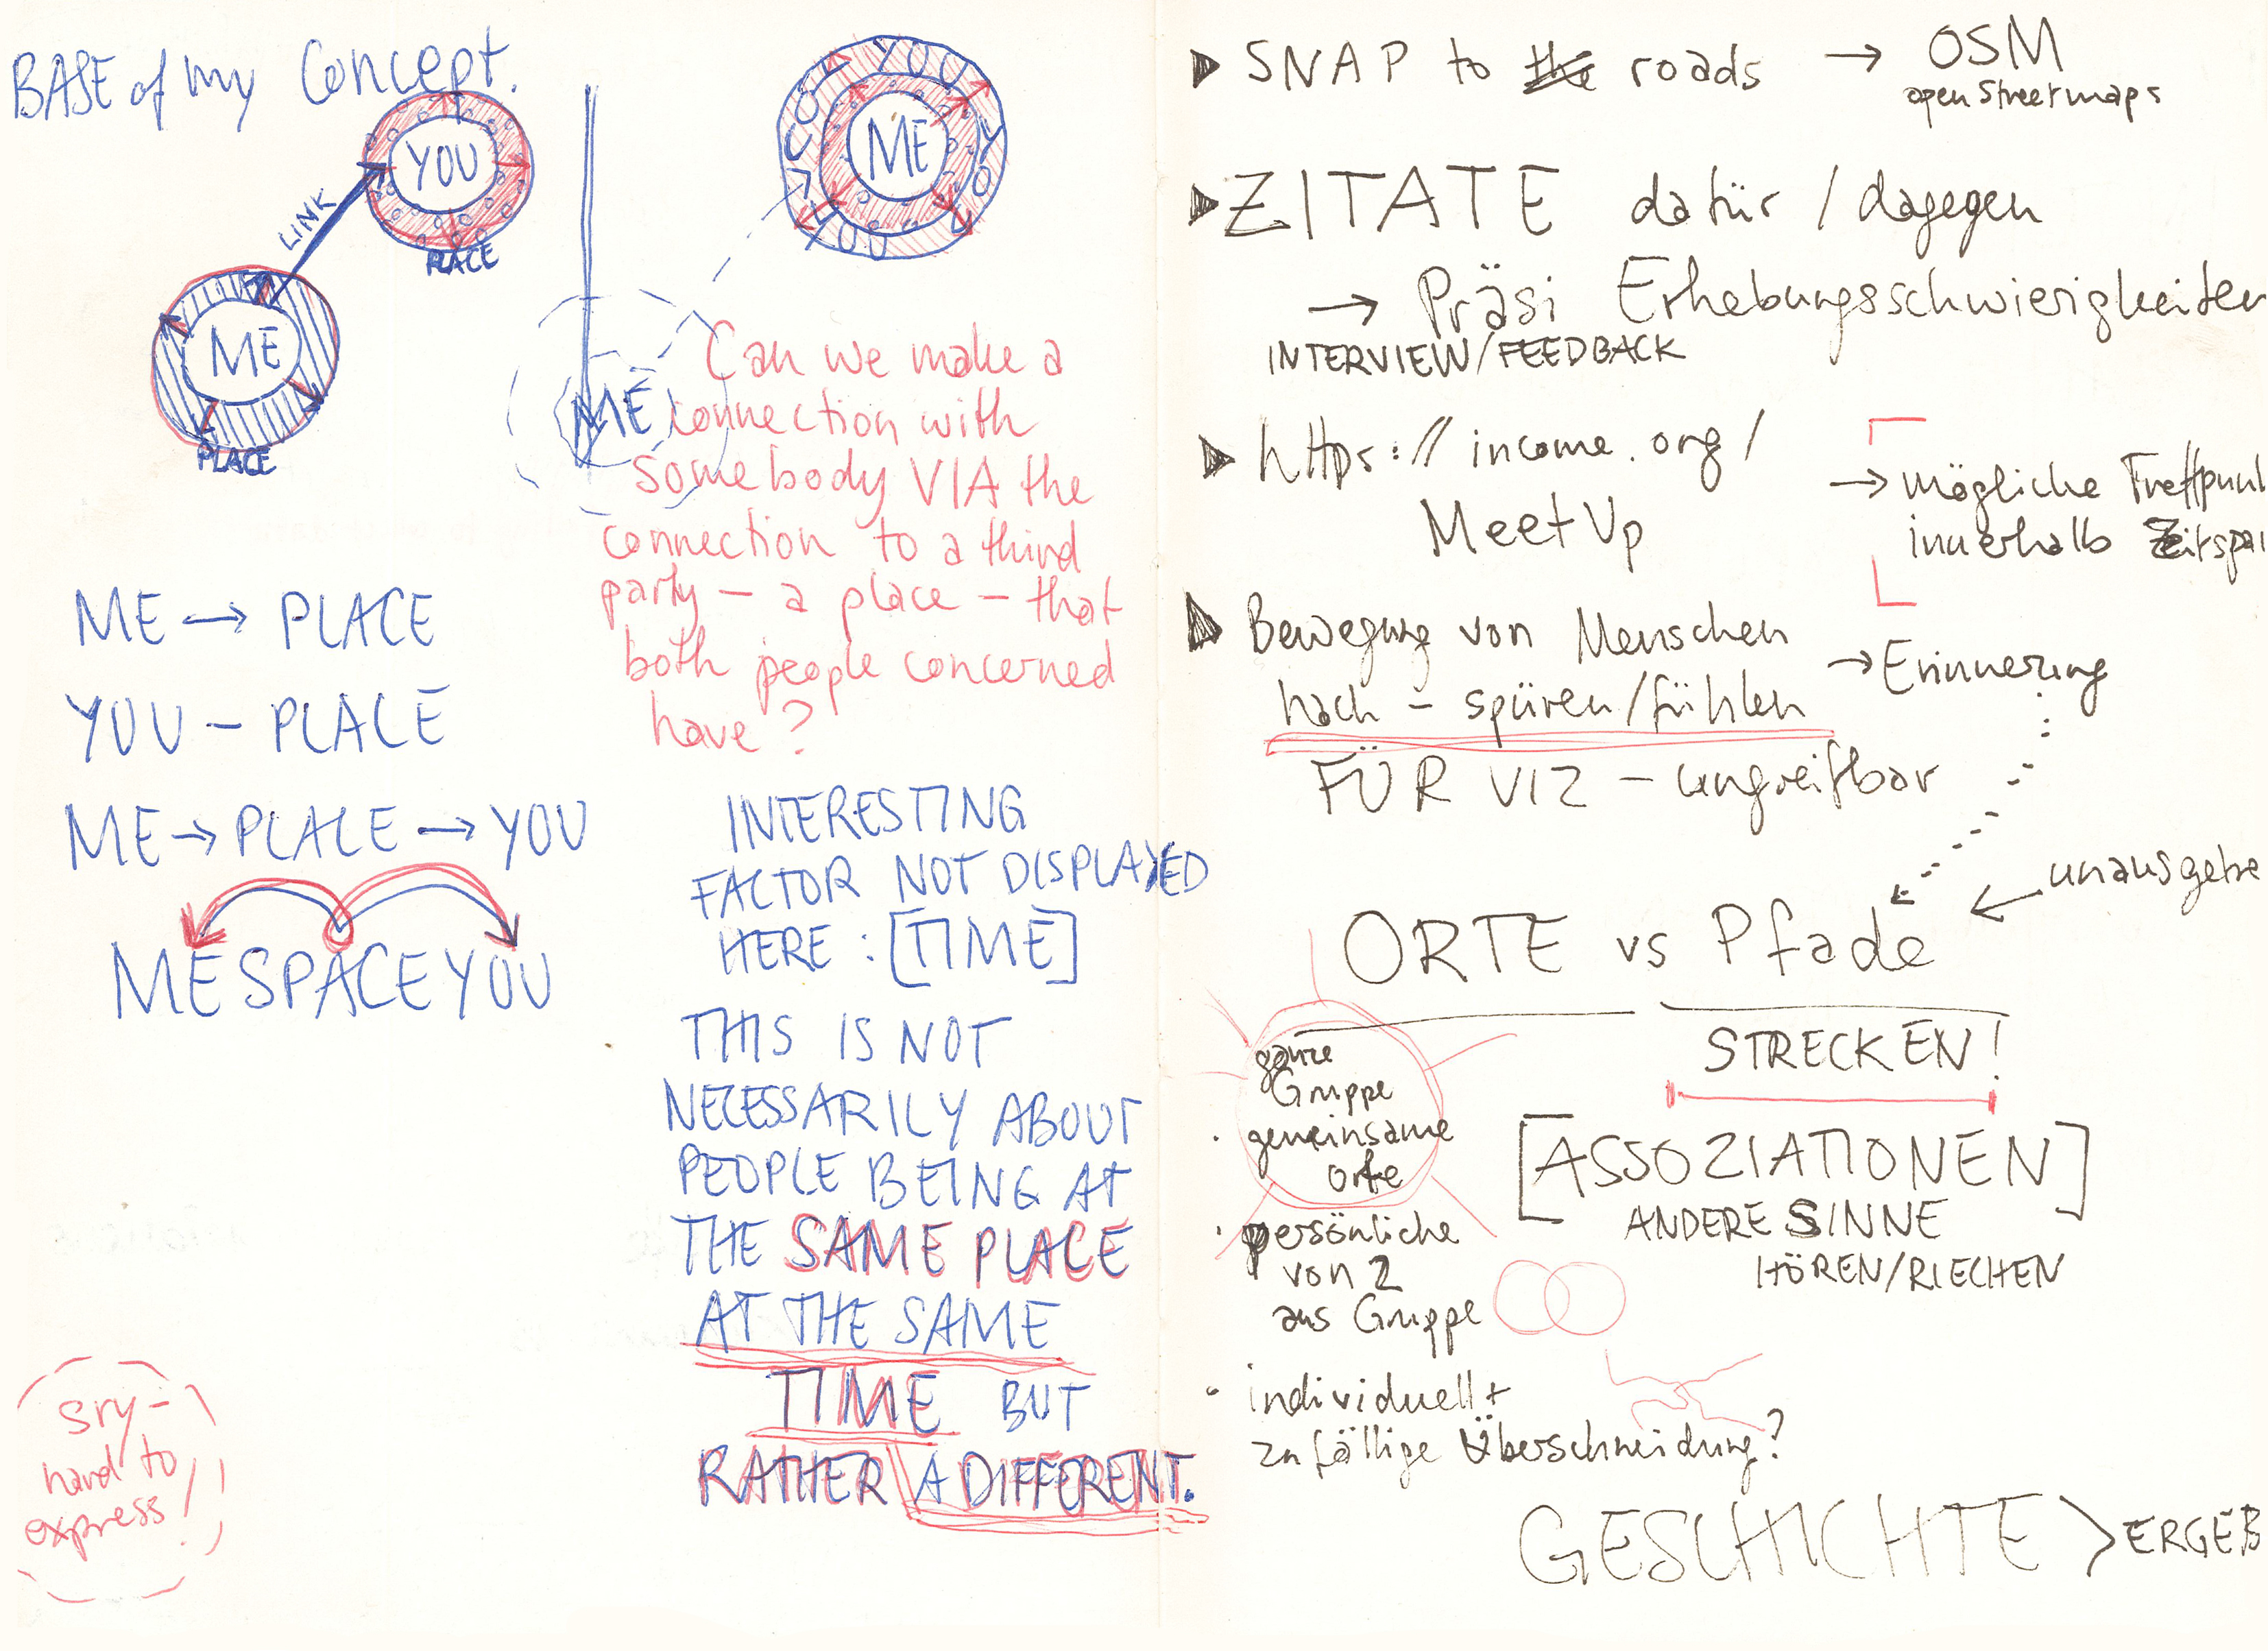 BASE of my Concept.
YOU
LINK
PLACE
ME
PLACE
YOU
YOU
YOU
YOU
ME
ME
Can we make a
connection with
somebody VIA the
connection to a third
party – a place – that
both people concerned
have?
ME → PLACE
YOU – PLACE
ME → PLACE → YOU
ME SPACE YOU
INTERESTING
FACTOR NOT DISPLAYED
HERE : [TIME]
THIS IS NOT
NECESSARILY ABOUT
PEOPLE BEING AT
THE SAME PLACE
AT THE SAME
TIME BUT
RATHER A DIFFERENT.
sry –
hard to
express!
SNAP to the roads → OSM
openStreetmaps
ZITATE dafür / dagegen
→ Präsi Erhebungsschwierigkeiten
INTERVIEW/FEEDBACK
https://income.org/
MeetUp
→ mögliche Treffpunk
innerhalb Zeitspa
Bewegung von Menschen
nach – spüren/fühlen
→ Erinnerung
FÜR VIZ – ungreifbar
← unausgetre
ORTE vs Pfade
STRECKEN!
ganze
Gruppe
· gemeinsame
orte
· persönliche
von 2
aus Gruppe
· individuell +
zufällige Überschneidung?
[ASSOZIATIONEN]
ANDERE SINNE
HÖREN/RIECHEN
GESCHICHTE > ERGEB